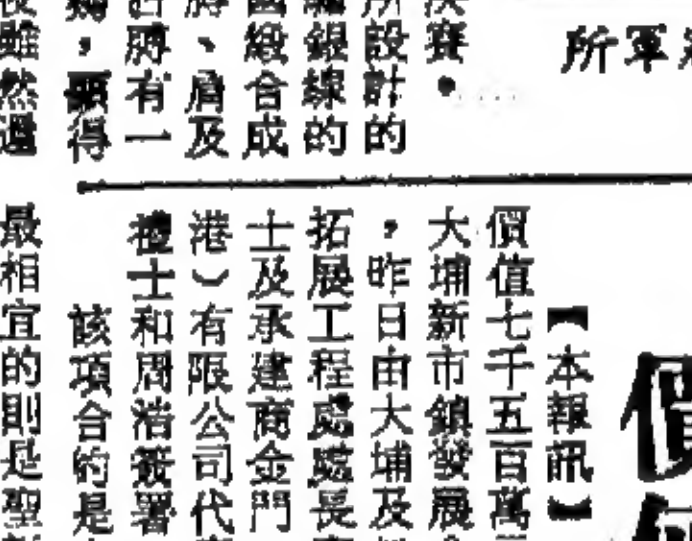 所軍
決賽。
所設計的
銀線的
緞合成
、肩及
膊有一
，顯得
雖然還
【本報訊】
價值七千五百萬
大埔新市鎮發展
，昨日由大埔及
拓展工程處處長
士及承建商金門
港）有限公司代
禮士和周浩簽署
該項合約是
最相宜的則是聖
價